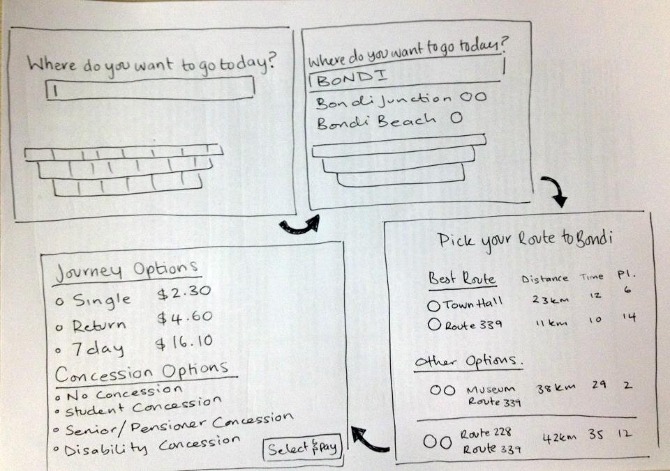 Where do you want to go today?
Where do you want to go today?
BONDI
Bondi Junction
Bondi Beach
Pick your Route to Bondi
Best Route Distance Time Pl.
Town Hall 23km 12 6
Route 339 11km 10 14
Other Options.
Museum 38km 29 2
Route 339
Route 228 42km 35 12
Route 339
Journey Options
Single $2.30
Return $4.60
7 day $16.10
Concession Options
No Concession
Student Concession
Senior/Pensioner Concession
Disability Concession
Select & Pay